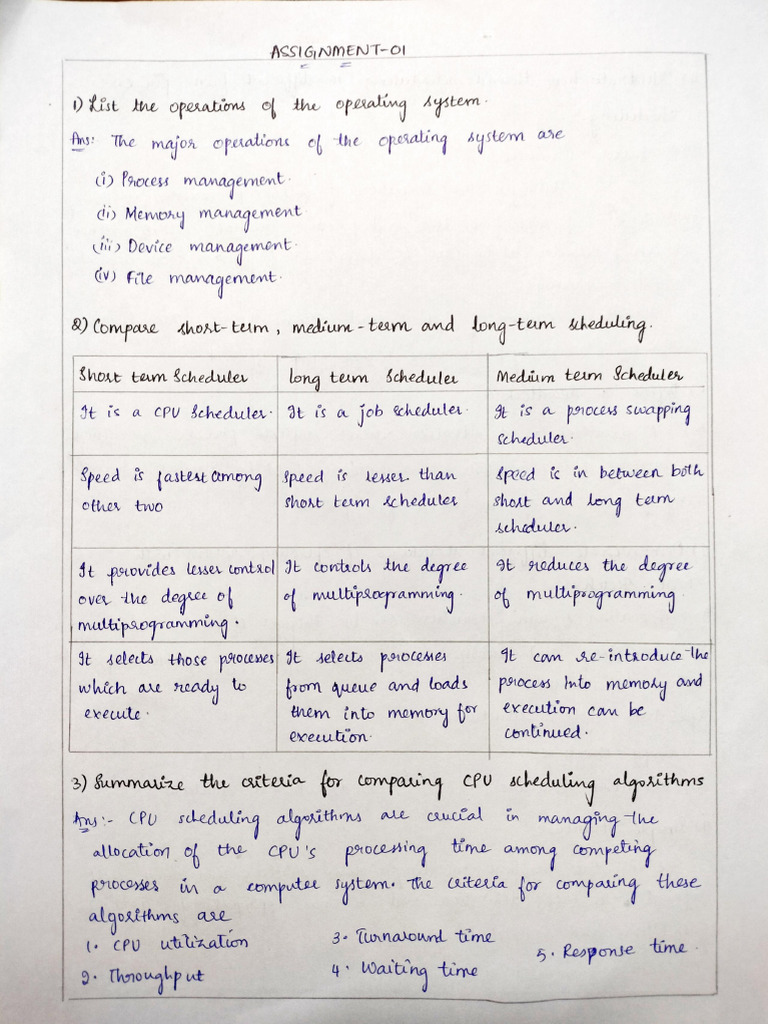 ASSIGNMENT-01
1) List the operations of the operating system.
Ans: The major operations of the operating system are
(i) Process management.
(ii) Memory management
(iii) Device management.
(iv) File management.
2) Compare short-term, medium-term and long-term scheduling.
Short term Scheduler
long term Scheduler
Medium term Scheduler
It is a CPU Scheduler.
It is a job scheduler.
It is a process swapping
scheduler.
Speed is fastest among
other two
speed is lesser than
short term scheduler
Speed is in between both
short and long term
scheduler.
It provides lesser control
over the degree of
multiprogramming.
It controls the degree
of multiprogramming.
It reduces the degree
of multiprogramming.
It selects those processes
which are ready to
execute.
It selects processes
from queue and loads
them into memory for
execution.
It can re-introduce the
process into memory and
execution can be
continued.
3) Summarize the criteria for comparing CPU scheduling algorithms
Ans:- CPU scheduling algorithms are crucial in managing the
allocation of the CPU's processing time among competing
processes in a computer system. The criteria for comparing these
algorithms are
1. CPU utilization
2. Throughput
3. Turnaround time
4. Waiting time
5. Response time.